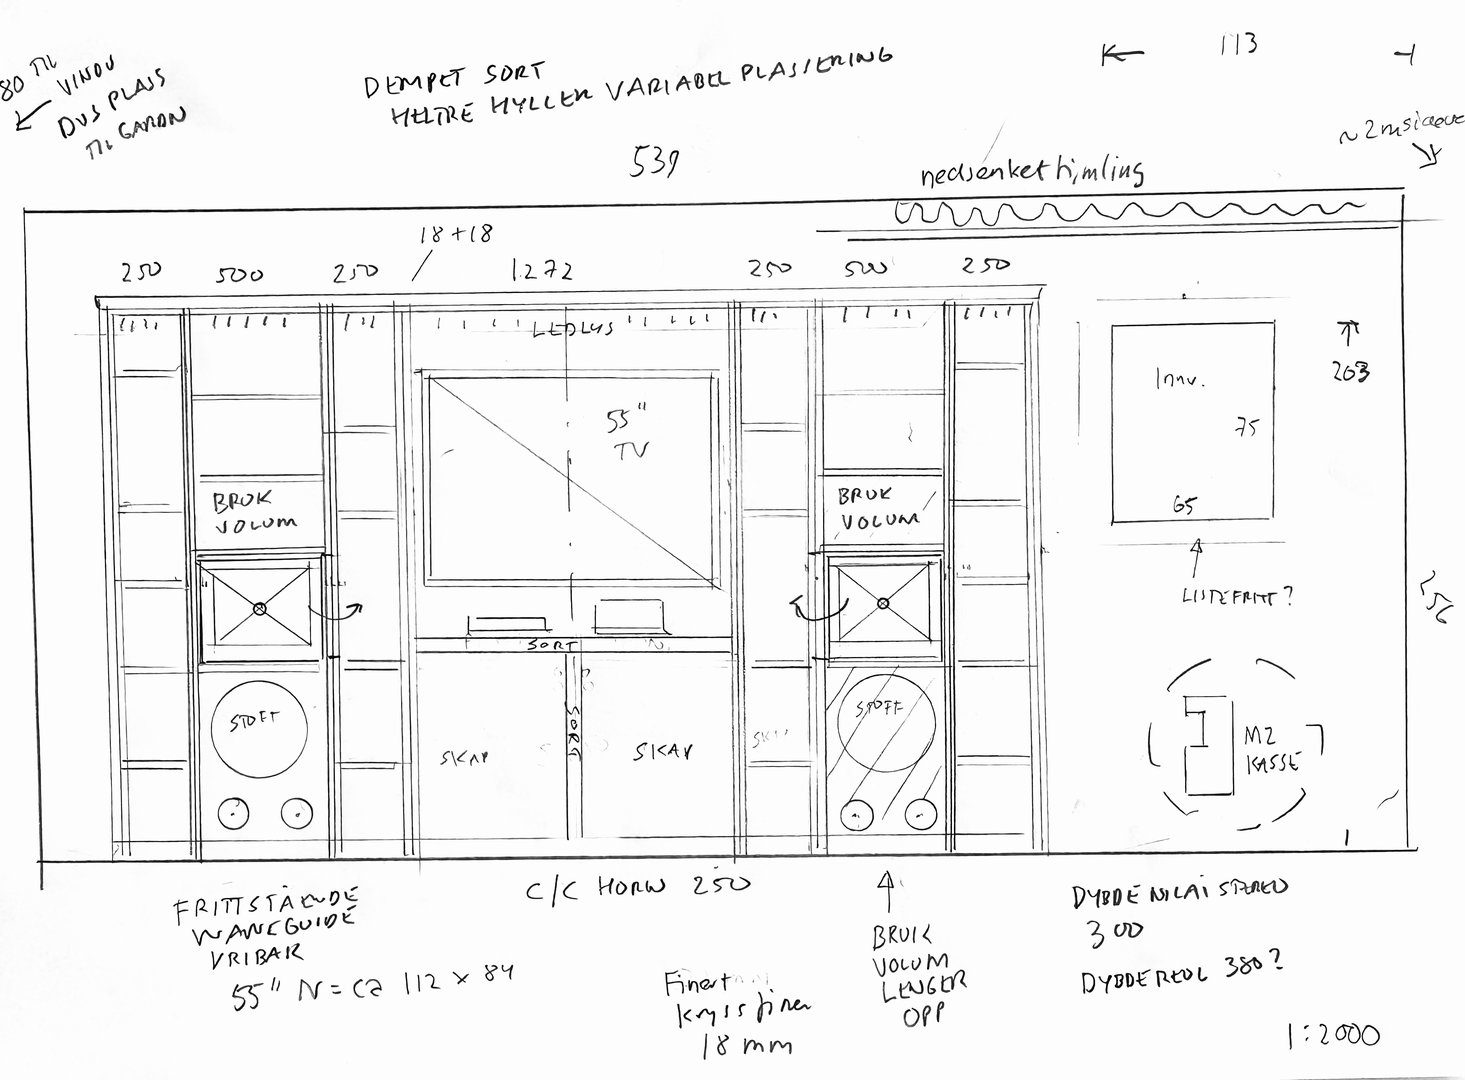 80 TIL
VINDU
DVS PLASS
TIL GARDN
DEMPET SORT
HELTRE HYLLER VARIABEL PLASSERING
539
113
nedsenket himling
18+18
250 500 250 1272 250 500 250
LEDLYS
55"
TV
Innv.
75
65
203
BRUK
VOLUM
BRUK
VOLUM
LISTEFRITT?
256
SORT
STOFF
SKAP
SORT
SKAP
SKAP
STOFF
M2
KASSE
C/C HORN 250
FRITTSTÅENDE
WAVEGUIDE
VRIBAR
55" N = ca 112 x 84
BRUK
VOLUM
LENGER
OPP
Finert
kryssfiner
18 mm
DYBDE NILAI STEREO
300
DYBDE REOL 380?
1:2000